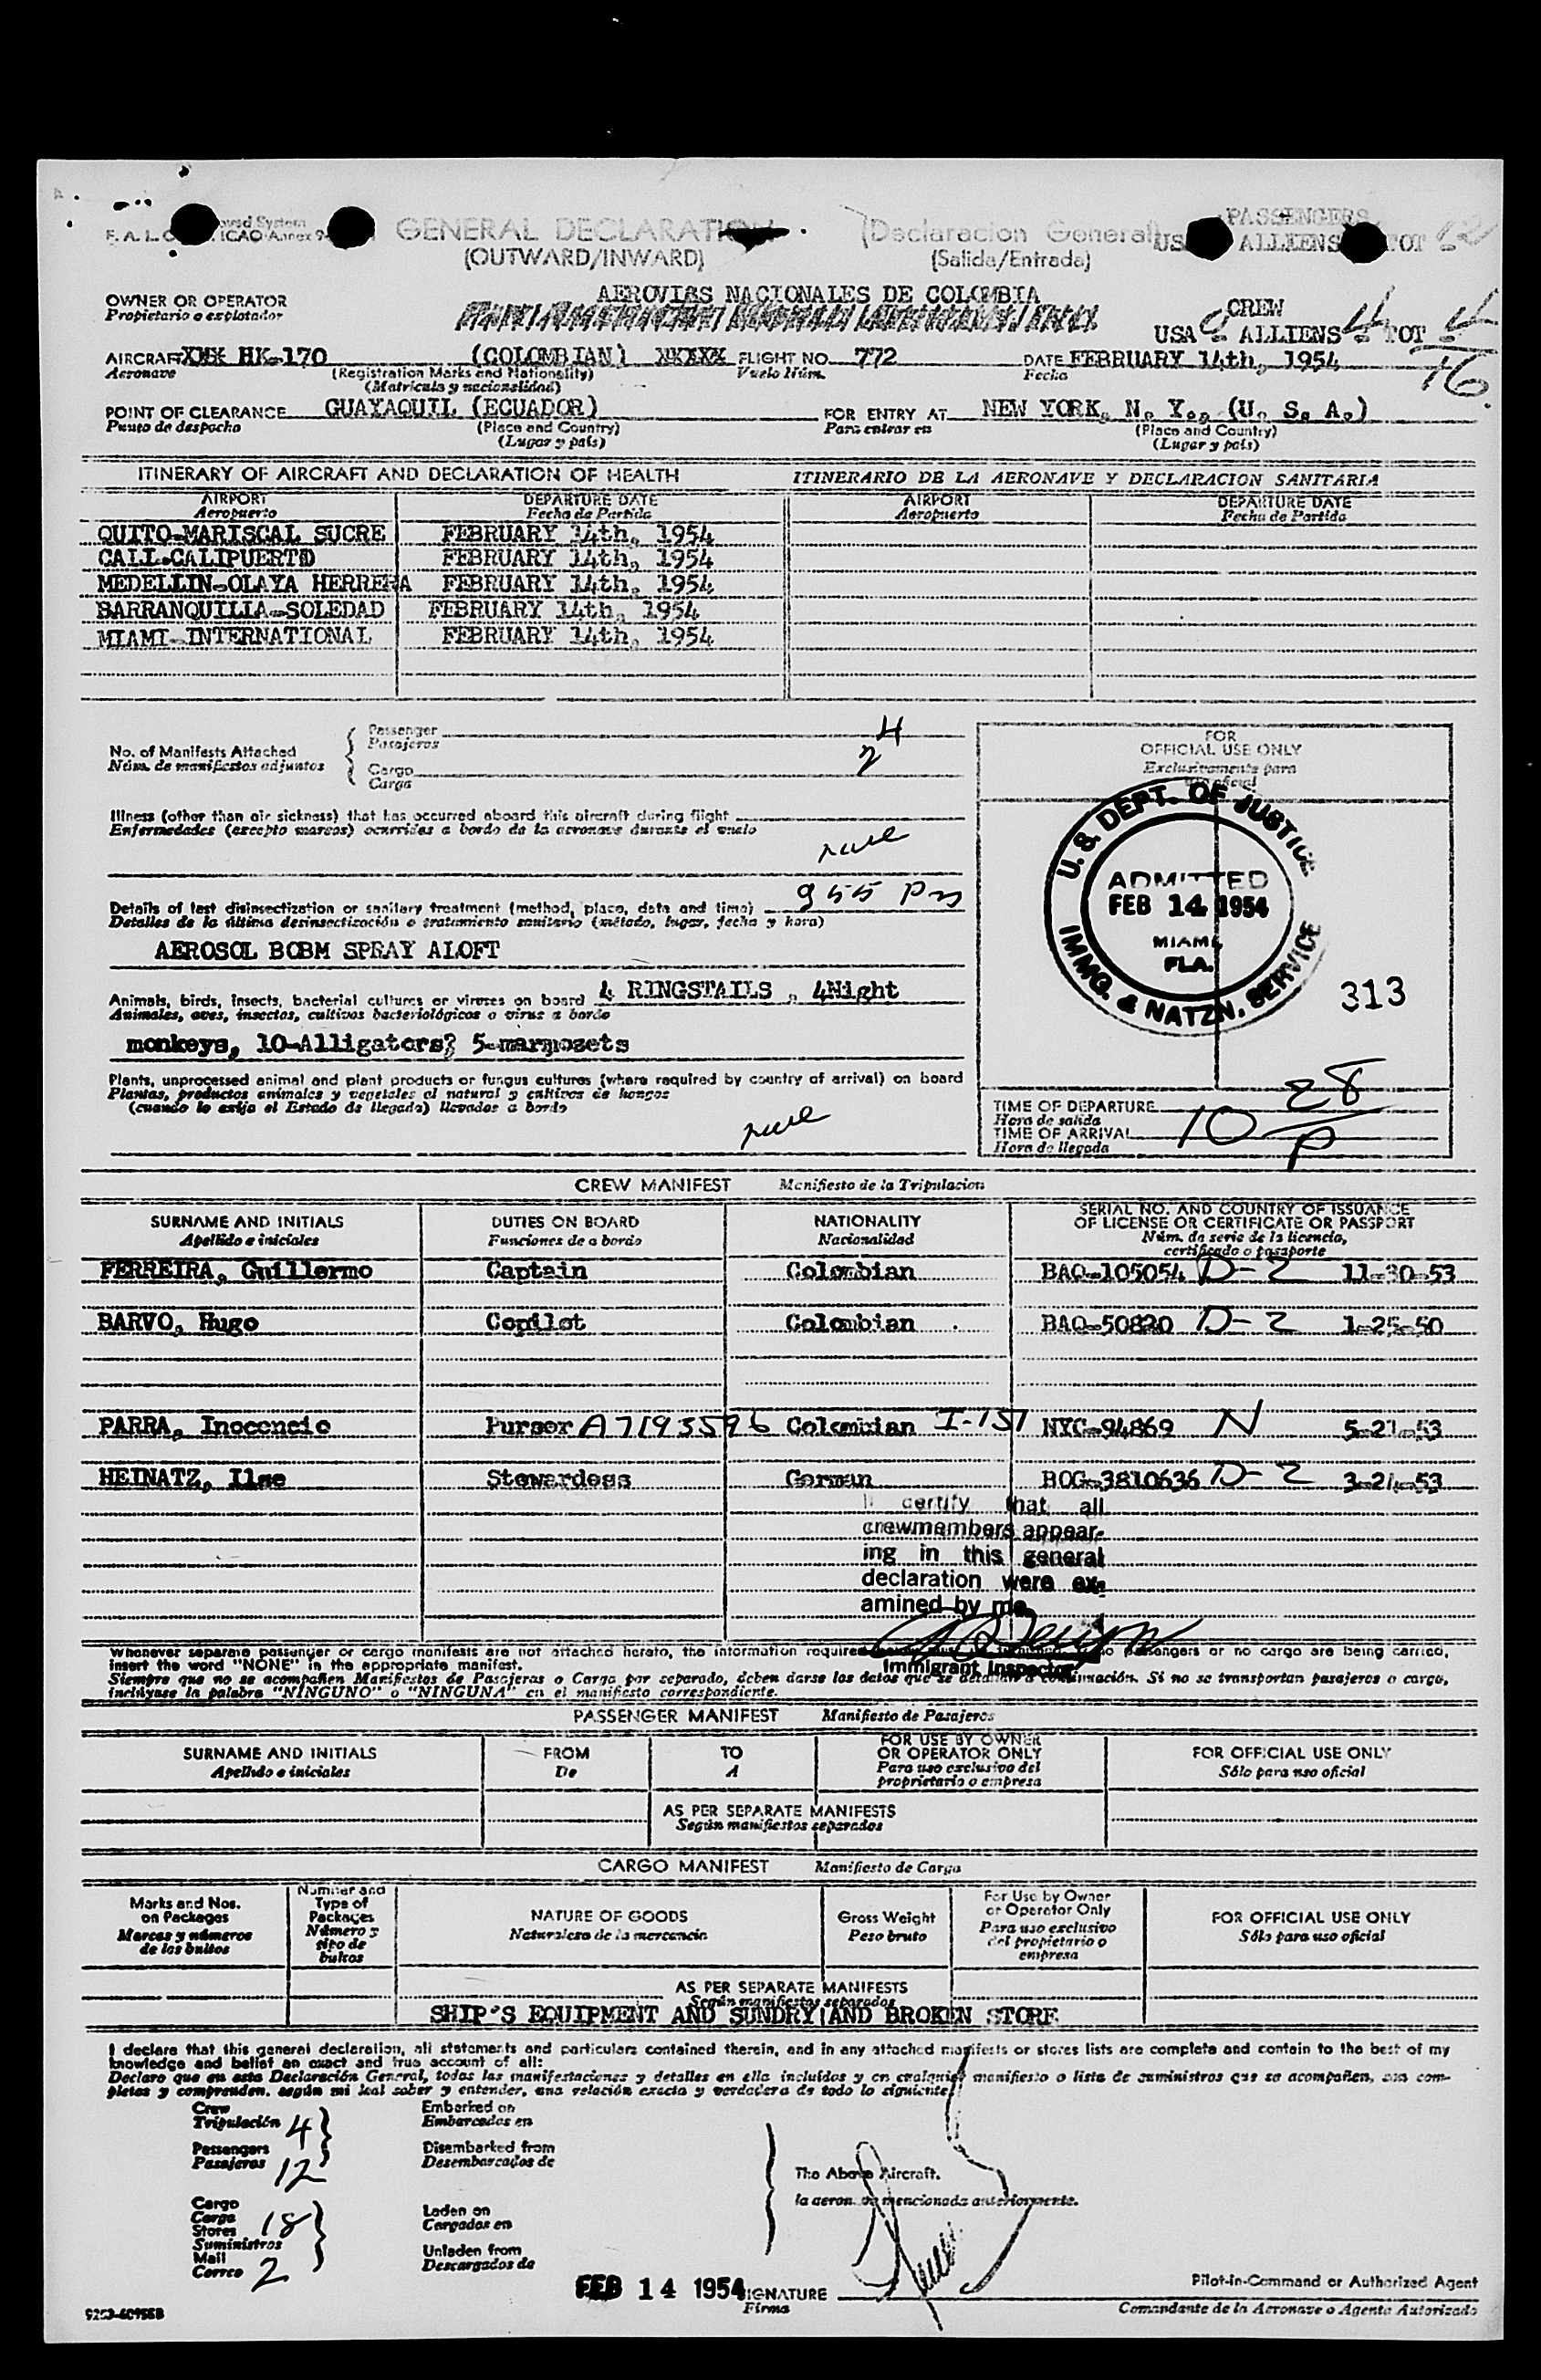 GENERAL DECLARATION (Declaracion General)
(OUTWARD/INWARD) (Salida/Entrada)
PASSENGERS
F. A. L. ICAO Annex 9
USA ALLIENS TOT 12
OWNER OR OPERATOR
Propietario o explotador
AEROVIAS NACIONALES DE COLOMBIA
CREW
USA 0 ALLIENS 4 TOT 4
16
AIRCRAFT HK-170 (COLOMBIAN) XXXXX FLIGHT NO. 772 DATE FEBRUARY 14th, 1954
Aeronave (Registration Marks and Nationality) Vuelo Núm. Fecha
(Matricula y nacionalidad)
POINT OF CLEARANCE GUAYAQUIL (ECUADOR) FOR ENTRY AT NEW YORK, N. Y., (U. S. A.)
Punto de despacho (Place and Country) Para entrar en (Place and Country)
(Lugar y país) (Lugar y país)
ITINERARY OF AIRCRAFT AND DECLARATION OF HEALTH ITINERARIO DE LA AERONAVE Y DECLARACION SANITARIA
AIRPORT DEPARTURE DATE AIRPORT DEPARTURE DATE
Aeropuerto Fecha de Partida Aeropuerto Fecha de Partida
QUITO-MARISCAL SUCRE FEBRUARY 14th, 1954
CALI-CALIPUERTO FEBRUARY 14th, 1954
MEDELLIN-OLAYA HERRERA FEBRUARY 14th, 1954
BARRANQUILLA-SOLEDAD FEBRUARY 14th, 1954
MIAMI-INTERNATIONAL FEBRUARY 14th, 1954
No. of Manifests Attached
Núm. de manifiestos adjuntos
Passenger 4
Pasajeros
Cargo 2
Carga
FOR
OFFICIAL USE ONLY
Exclusivamente para
uso oficial
Illness (other than air sickness) that has occurred aboard this aircraft during flight
Enfermedades (excepto mareos) ocurridas a bordo de la aeronave durante el vuelo
none
Details of last disinsectization or sanitary treatment (method, place, date and time) 9 55 Pm
Detalles de la última desinsectización o tratamiento sanitario (método, lugar, fecha y hora)
AEROSOL BOBM SPRAY ALOFT
Animals, birds, insects, bacterial cultures or viruses on board 4 RINGSTAILS , 4Night
Animales, aves, insectos, cultivos bacteriológicos o virus a bordo
monkeys, 10-Alligators? 5-marmosets
Plants, unprocessed animal and plant products or fungus cultures (where required by country of arrival) on board
Plantas, productos animales y vegetales al natural y cultivos de hongos
(cuando lo exija el Estado de llegada) llevados a bordo
none
U. S. DEPT. OF JUSTICE
ADMITTED
FEB 14 1954
MIAMI,
FLA.
IMMG. & NATZN. SERVICE
313
TIME OF DEPARTURE
Hora de salida
TIME OF ARRIVAL 10 28 P
Hora de llegada
CREW MANIFEST Manifiesto de la Tripulacion
SURNAME AND INITIALS DUTIES ON BOARD NATIONALITY SERIAL NO. AND COUNTRY OF ISSUANCE
OF LICENSE OR CERTIFICATE OR PASSPORT
Apellido e iniciales Funciones de a bordo Nacionalidad Núm. de serie de la licencia,
certificado o pasaporte
FERREIRA, Guillermo Captain Colombian BAQ-105054 D-2 11-30-53
BARVO, Hugo Copilot Colombian BAQ-50820 D-2 1-25-50
PARRA, Inocencio Purser A7193596 Colombian I-151 NYC-94869 N 5-21-53
HEINATZ, Ilse Stewardess German BOG-3810636 D-2 3-24-53
I certify that all
crewmembers appear-
ing in this general
declaration were ex-
amined by me.
Immigrant Inspector
Whenever separate passenger or cargo manifests are not attached hereto, the information required passengers or no cargo are being carried,
insert the word "NONE" in the appropriate manifest.
Siempre que no se acompañen Manifiestos de Pasajeros o Carga por separado, deben darse los datos que se detallan a continuación. Si no se transportan pasajeros o carga,
inclúyase la palabra "NINGUNO" o "NINGUNA" en el manifiesto correspondiente.
PASSENGER MANIFEST Manifiesto de Pasajeros
SURNAME AND INITIALS FROM TO FOR USE BY OWNER
OR OPERATOR ONLY FOR OFFICIAL USE ONLY
Apellido e iniciales De A Para uso exclusivo del
propietario o empresa Sólo para uso oficial
AS PER SEPARATE MANIFESTS
Según manifiestos separados
CARGO MANIFEST Manifiesto de Carga
Marks and Nos.
on Packages
Marcas y números
de los bultos
Number and
Type of
Packages
Número y
tipo de
bultos
NATURE OF GOODS
Naturaleza de la mercancia
Gross Weight
Peso bruto
For Use by Owner
or Operator Only
Para uso exclusivo
del propietario o
empresa
FOR OFFICIAL USE ONLY
Sólo para uso oficial
AS PER SEPARATE MANIFESTS
Según manifiestos separados
SHIP'S EQUIPMENT AND SUNDRY AND BROKEN STORE
I declare that this general declaration, all statements and particulars contained therein, and in any attached manifests or stores lists are complete and contain to the best of my
knowledge and belief an exact and true account of all:
Declaro que en esta Declaración General, todas las manifestaciones y detalles en ella incluidos y en cualquier manifiesto o lista de suministros que se acompañen, son com-
pletos y comprenden, según mi leal saber y entender, una relación exacta y verdadera de todo lo siguiente:
Crew
Tripulación 4
Passengers
Pasajeros 12
Embarked on
Embarcados en
Disembarked from
Desembarcados de
The Above Aircraft.
la aeronave mencionada anteriormente.
Cargo
Carga
Stores 18
Suministros
Mail
Correo 2
Laden on
Cargados en
Unladen from
Descargados de
FEB 14 1954 SIGNATURE
Firma
Pilot-in-Command or Authorized Agent
Comandante de la Aeronave o Agente Autorizado